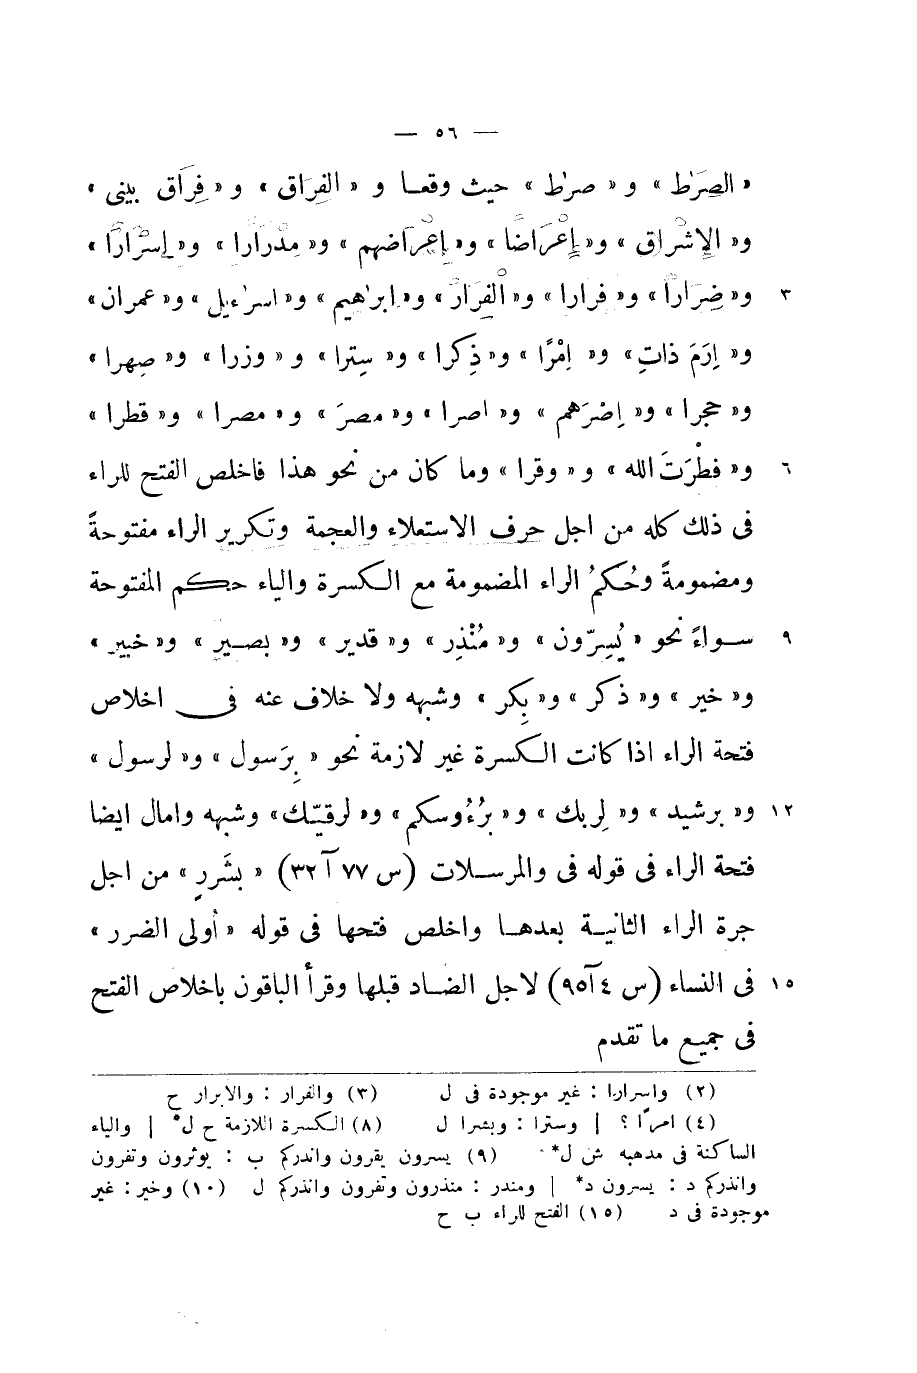 — ٥٦ —
« الصِرَٰط » و « صرٰط » حيث وقعـا و « الفِرَاق » و « فِرَاق بينى »
و« الإِشْرَاق » و« إِعْرَاضًا » و« إِعْرَاضهم » و« مِدْرَارا » و« إِسْرَارًا »
٣ و« ضِرَارًا » و« فرارا » و« الْفِرَارُ » و« ابرٰهيم » و« اسرٰءيل » و« عمران »
و« اِرَمَ ذاتِ » و« اِمْرًا » و« ذِكرا » و« سِترا » و « وزرا » و« صِهرا »
و« حجرا » و« اِصْرَهم » و« اصرا » و« مصرَ » و « مصرا » و« قطرا »
٦ و« فطْرَتَ الله » و « وقرا » وما كان من نحو هذا فاخلص الفتح للراء
فى ذلك كله من اجل حرف الاستعلاء والعجمة وتكرير الراء مفتوحةً
ومضمومةً وحُكمُ الراء المضمومة مع الكسرة والياء حكم المفتوحة
٩ سـواءً نحو « يُسِرّون » و« مُنْذِر » و« قدير » و« بصـير » و« خبير »
و« خير » و« ذكر » و« بِكر » وشبهه ولا خلاف عنه فى اخلاص
فتحة الراء اذا كانت الكسرة غير لازمة نحو « بِرَسول » و« لرسول »
١٢ و« برشيد » و« لِربك » و « بِرُءُوسكم » و« لرقيّك » وشبهه وامال ايضا
فتحة الراء فى قوله فى والمرسلات (س ٧٧ آ ٣٢) « بشَررٍ » من اجل
جرة الراء الثانيـة بعدهـا واخلص فتحها فى قوله « أولى الضرر »
١٥ فى النساء (س ٤ آ ٩٥) لاجل الضـاد قبلها وقرأ الباقون باخلاص الفتح
فى جميع ما تقدم
(٢) واسرارا : غير موجودة فى ل (٣) والفرار : والابرار ح
(٤) امرًا ؟ | وسترا : وبشرا ل (٨) الكسرة اللازمة ح ل* | والياء
الساكنة فى مذهبه ش ل* (٩) يسرون يقرون واندركم ب : يوثرون وتفرون
وانذركم د : يسرون د* | ومنذر : منذرون وتفرون وانذركم ل (١٠) وخير : غير
موجودة فى د (١٥) الفتح للراء ب ح